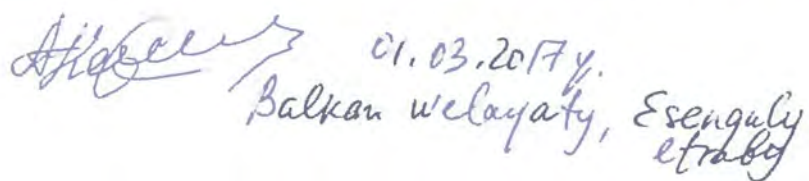 01.03.2017 y.
Balkan welayaty, Esenguly
etraby